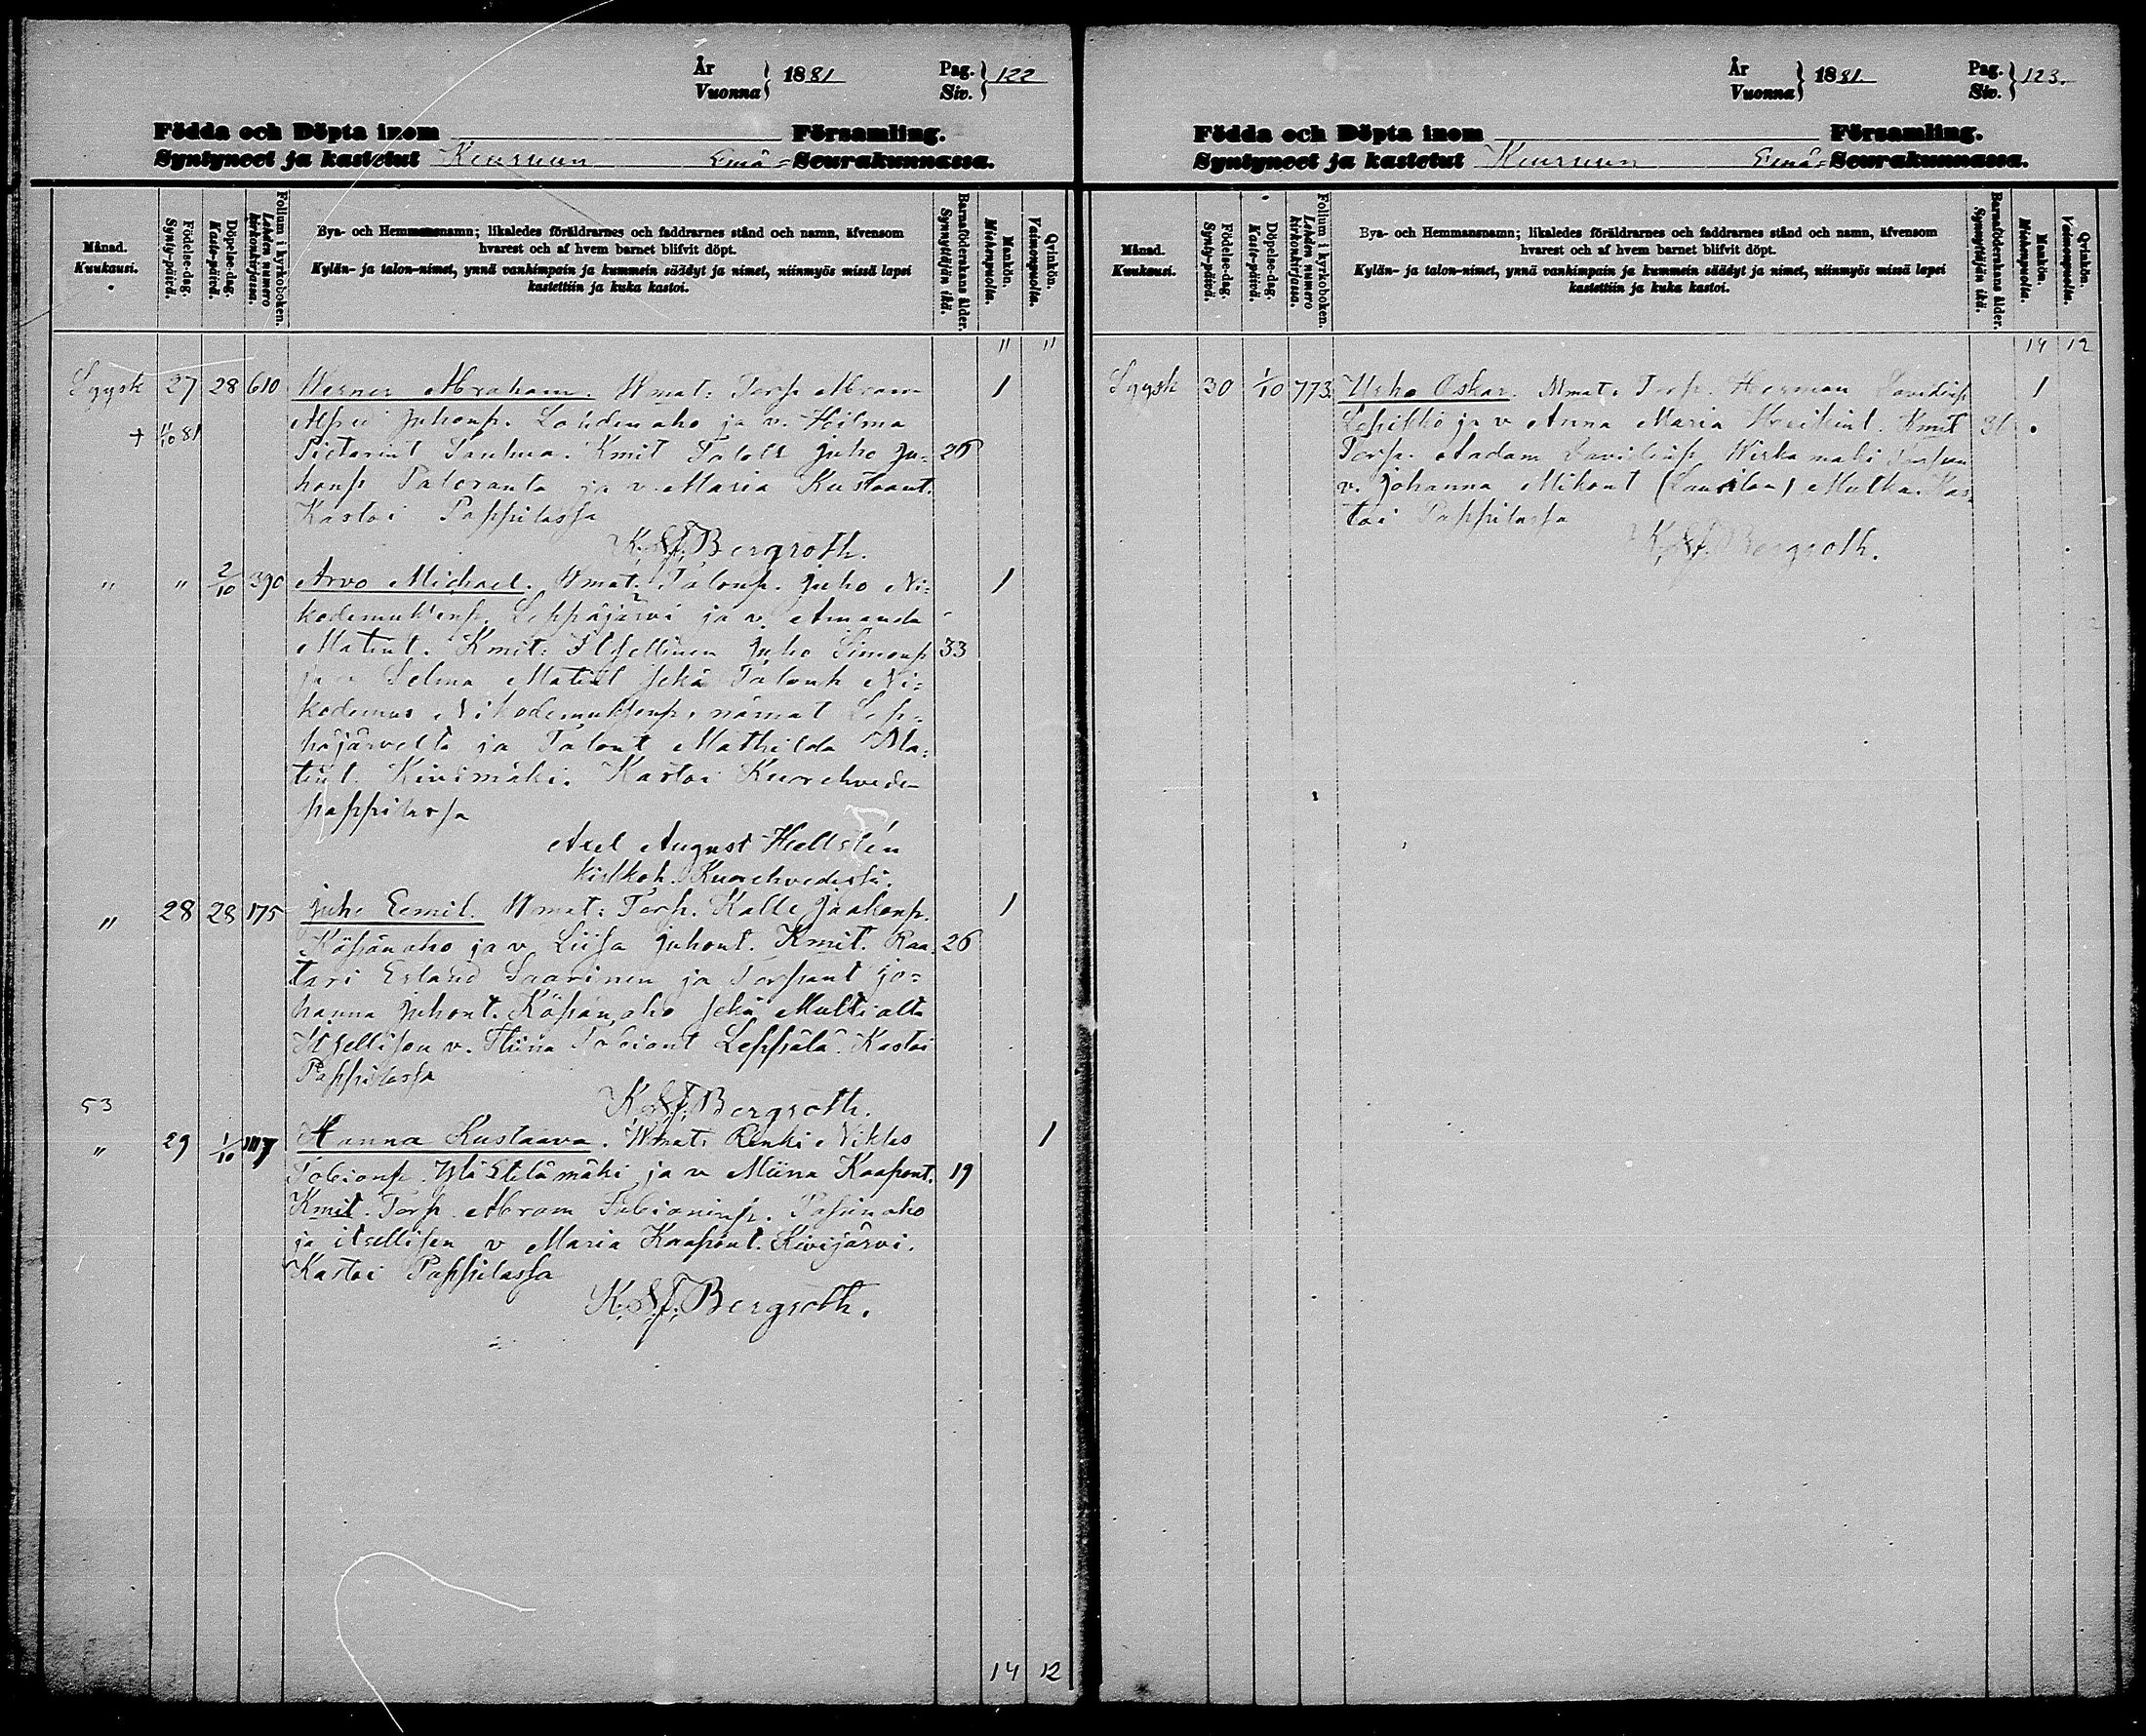 År
Vuonna } 1881
Pag.
Siv. } 122
Födda och Döpta inom Församling.
Syntyneet ja kastetut Keuruun Emä=Seurakunnassa.
Månad.
Kuukausi.
Födelse-dag.
Synty-päivä.
Döpelse-dag.
Kaste-päivä.
Folium i kyrkoboken.
Lehden numero kirkonkirjassa.
Bya- och Hemmansnamn; likaledes föräldrarnes och faddrarnes stånd och namn, äfvensom
hvarest och af hvem barnet blifvit döpt.
Kylän- ja talon-nimet, ynnä vanhimpain ja kummein säädyt ja nimet, niinmyös missä lapsi
kastettiin ja kuka kastoi.
Barnaföderskans ålder.
Synnyttäjän ikä.
Mankön.
Miehenpuolia.
Qvinkön.
Vaimonpuolia.
" "
Syysk 27 28 610 Werner Abraham. Wmat: Torp. Abram 1
Alfred Juhonp. Lahdenaho ja v. Hilma
+ 11/10 81
Pietarint Kmit Juho Ju= 26
honp Paloranta ja v. Maria Kustaant.
Kastoi Pappilassa
K. Bergroth.
" " 2/10 390 Arvo Michael. Wmat: Talonp. Juho Ni= 1
kodemuksenp. Leppäjärvi ja v. Amanda
Matint. Kmit: Itsellinen Juho Simonp 33
ja v Selma Matint sekä Talonp Ni=
kodemus Nikodemuksenp. nämat Lep=
päjärveltä ja Talont Mathilda Ma=
tint. Kivimäki. Kastoi Kuoreveden
pappilassa
Axel August Hellstén
kirkkoh. Kuorehvedestä.
" 28 28 175 Juho Eemil. Wmat: Torp. Kalle Jaakonp. 1
Käpänaho ja v. Liisa Juhont. Kmit. Raa= 26
tari Erland Saarinen ja Torpant Jo=
hanna Juhont. Käpänaho sekä Multialta
Itsellisen v. Tobiant Leppälä. Kastoi
Pappilassa
K. Bergroth.
53
" 29 1/10 Hanna Kustaava. Wmat: Renki Niklas 1
Tobionp. Ylä Etelämäki ja v Miina Kaapont. 19
Kmit. Torp Abram Fabianinp.
ja itsellisen v Maria Kaapont. Kivijärvi.
Kastoi Pappilassa
K. Bergroth.
14 12
År
Vuonna } 1881.
Pag.
Siv. } 123.
Födda och Döpta inom Församling.
Syntyneet ja kastetut Keuruun Emä=Seurakunnassa.
Månad.
Kuukausi.
Födelse-dag.
Synty-päivä.
Döpelse-dag.
Kaste-päivä.
Folium i kyrkoboken.
Lehden numero kirkonkirjassa.
Bya- och Hemmansnamn; likaledes föräldrarnes och faddrarnes stånd och namn, äfvensom
hvarest och af hvem barnet blifvit döpt.
Kylän- ja talon-nimet, ynnä vanhimpain ja kummein säädyt ja nimet, niinmyös missä lapsi
kastettiin ja kuka kastoi.
Barnaföderskans ålder.
Synnyttäjän ikä.
Mankön.
Miehenpuolia.
Qvinkön.
Vaimonpuolia.
14 12
Syysk 30 1/10 773. Urho Oskar. Wmat: Torp. Herman Davidinp 1
Lepikko ja v Anna Maria Kmit
Torp. Aadam Davidinp
v. Johanna Mikont Kas=
toi Pappilassa
K. Bergroth.